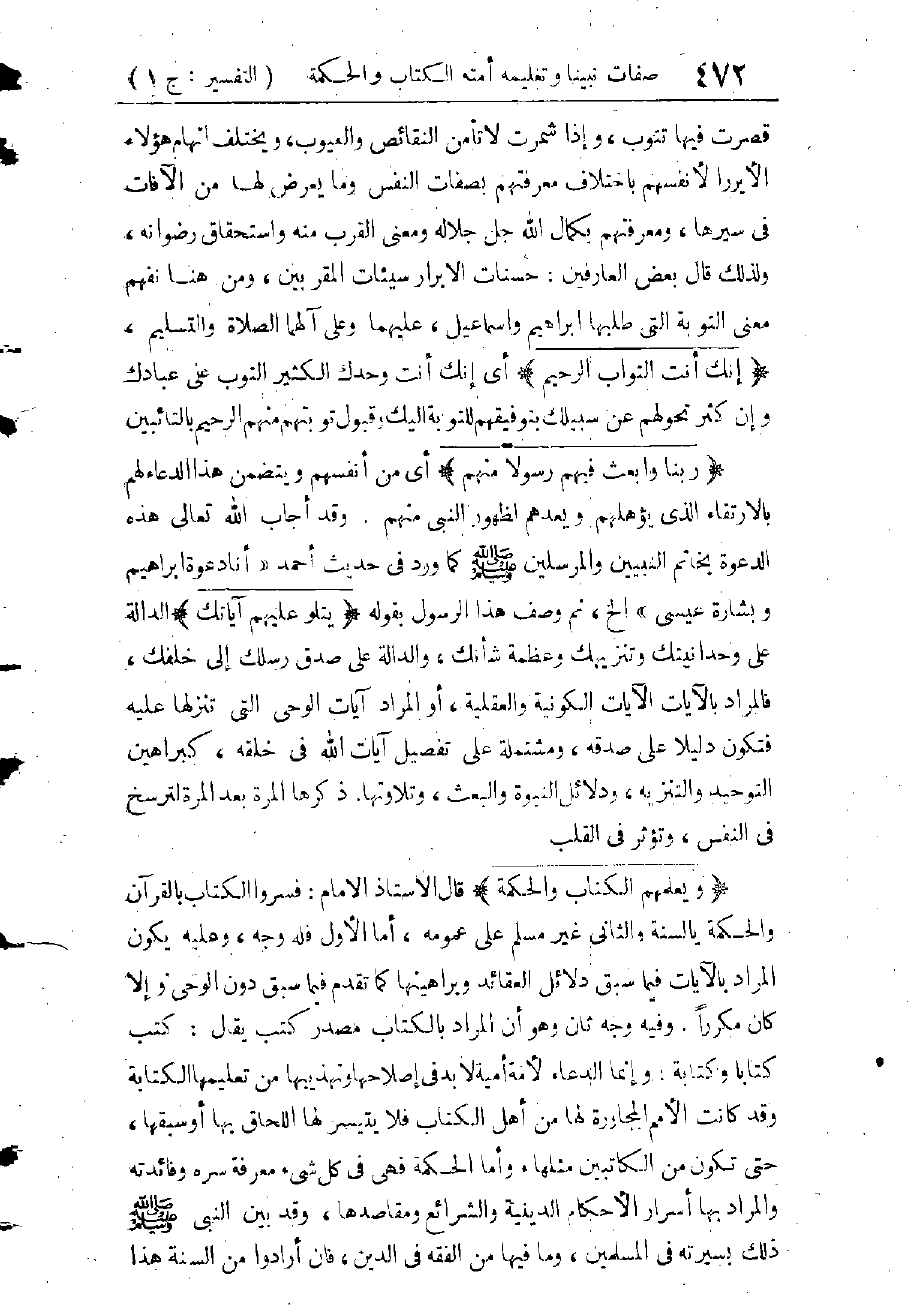 ٤٧٢ صفات نبينا وتعليمه أمته الكتاب والحكمة ( التفسير : ج ١ )
قصرت فيها تتوب ، وإذا شمرت لا تأمن النقائص والعيوب، ويختلف اتهام هؤلاء
الأبررا لأنفسهم باختلاف معرفتهم بصفات النفس وما يعرض لها من الآفات
فى سيرها ، ومعرفتهم بكمال الله جل جلاله ومعنى القرب منه واستحقاق رضوانه ،
ولذلك قال بعض العارفين : حسنات الابرار سيئات المقربين ، ومن هنا نفهم
معنى التوبة التى طلبها ابراهيم واسماعيل ، عليهما وعلى آلهما الصلاة والتسليم ،
﴿ إنك أنت التواب الرحيم ﴾ أى إنك أنت وحدك الكثير التوب على عبادك
وإن كثر تحولهم عن سبيلك بتوفيقهم للتوبة اليك وقبول توبتهم منهم الرحيم بالتائبين
﴿ ربنا وابعث فيهم رسولا منهم ﴾ أى من أنفسهم ويتضمن هذا الدعاء لهم
بالارتقاء الذى يؤهلهم ويعدهم لظهور النبى منهم . وقد أجاب الله تعالى هذه
الدعوة بخاتم النبيين والمرسلين ﷺ كما ورد فى حديث أحمد « أنا دعوة ابراهيم
وبشارة عيسى » الخ ، ثم وصف هذا الرسول بقوله ﴿ يتلو عليهم آياتك ﴾ الدالة
على وحدانيتك وتنزيهك وعظمة شأنك ، والدالة على صدق رسلك إلى خلقك ،
فالمراد بالآيات الآيات الكونية والعقلية ، أو المراد آيات الوحى التى تنزلها عليه
فتكون دليلا على صدقه ، ومشتملة على تفصيل آيات الله فى خلقه ، كبراهين
التوحيد والتنزيه ، ودلائل النبوة والبعث ، وتلاوتها. ذكرها المرة بعد المرة لترسخ
فى النفس ، وتؤثر فى القلب
﴿ ويعلمهم الكتاب والحكمة ﴾ قال الاستاذ الامام : فسروا الكتاب بالقرآن
والحكمة بالسنة والثانى غير مسلم على عمومه ، أما الأول فله وجه ، وعليه يكون
المراد بالآيات فيما سبق دلائل العقائد وبراهينها كما تقدم فيما سبق دون الوحى وإلا
كان مكرراً . وفيه وجه ثان وهو أن المراد بالكتاب مصدر كتب يقال : كتب
كتابا وكتابة : وإنما الدعاء لأمة أمية لا بد فى إصلاحها وتهذيبها من تعليمها الكتابة
وقد كانت الأمم المجاورة لها من أهل الكتاب فلا يتيسر لها اللحاق بها أو سبقها ،
حتى تكون من الكاتبين مثلها ، وأما الحكمة فهى فى كل شىء معرفة سره وفائدته
والمراد بها أسرار الأحكام الدينية والشرائع ومقاصدها ، وقد بين النبى ﷺ
ذلك بسيرته فى المسلمين ، وما فيها من الفقه فى الدين ، فان أرادوا من السنة هذا